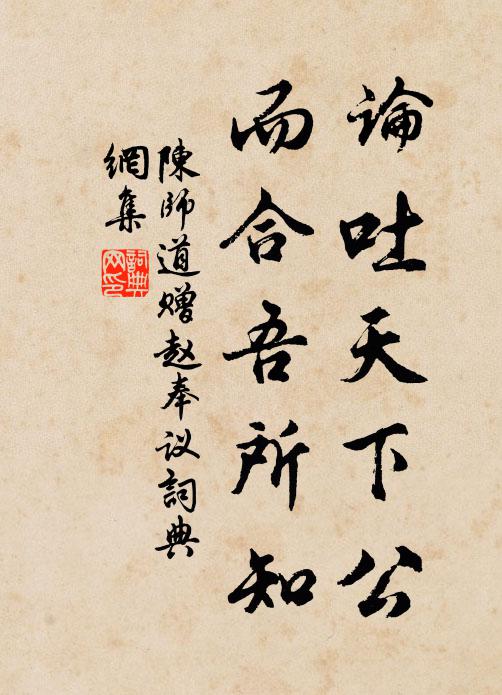 論吐天下公
而合吾所知
陳師道赠赵奉议詞典
網集
詞典
网印